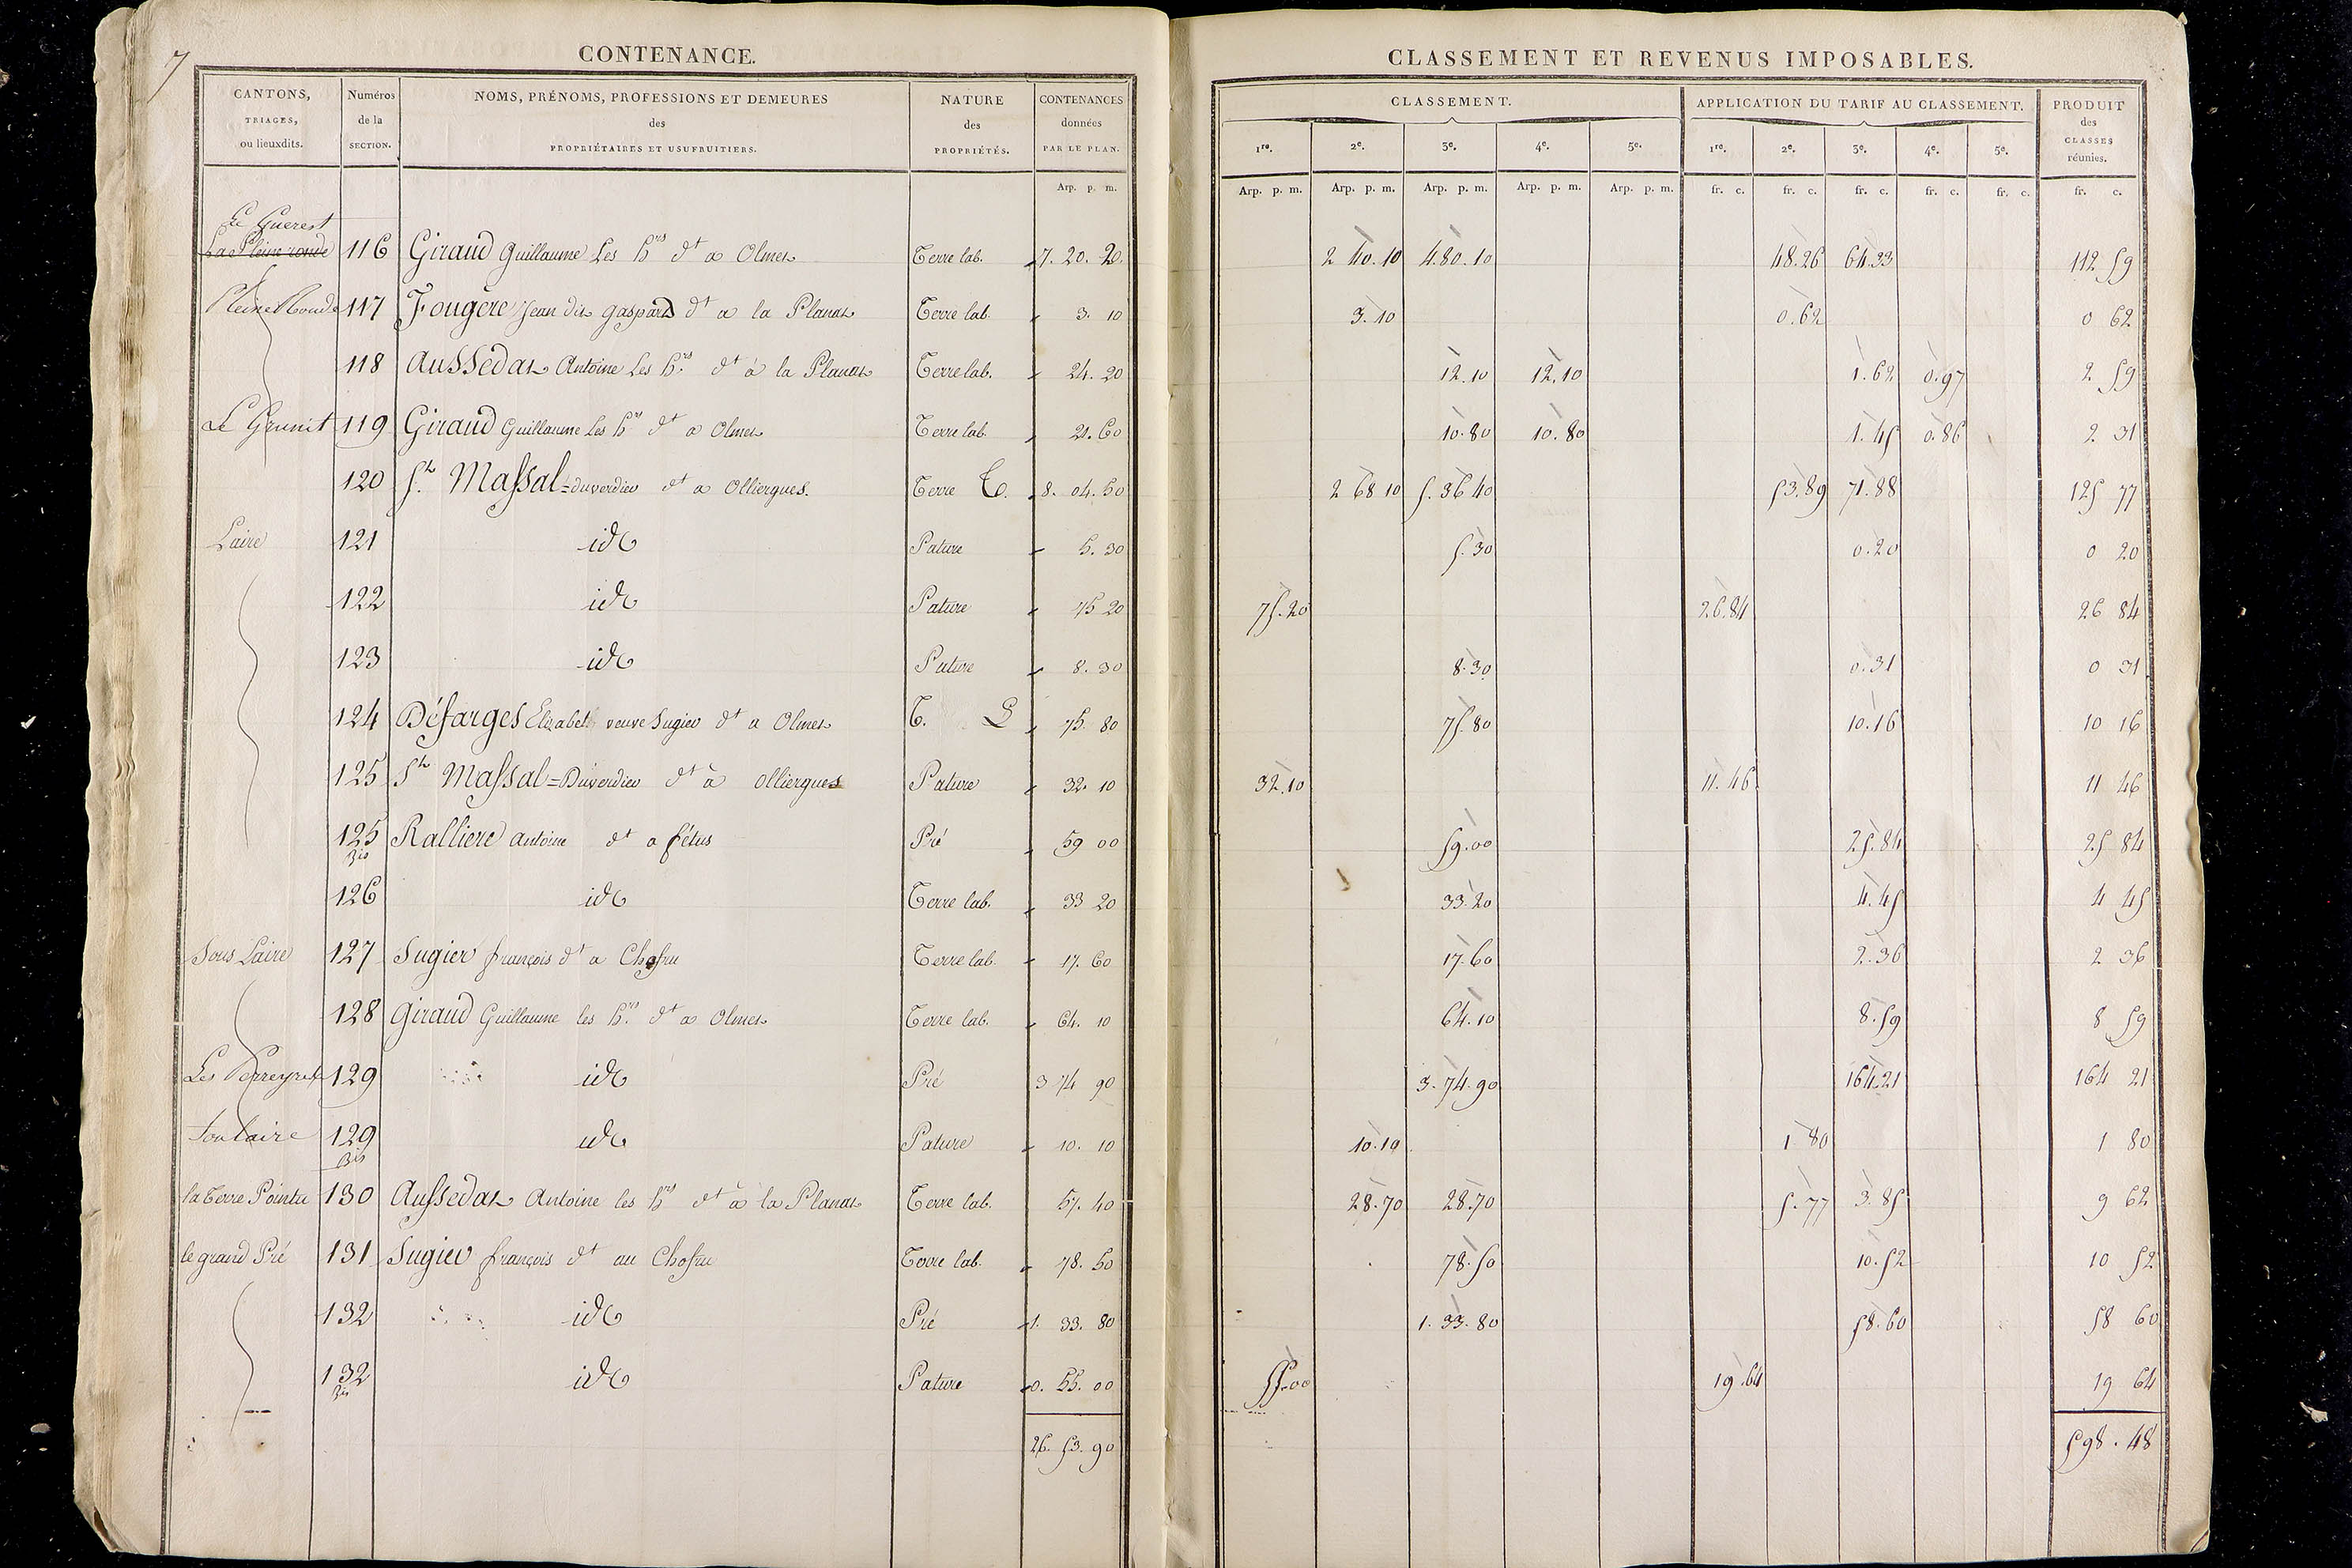 7
CONTENANCE.
CANTONS, TRIAGES, ou lieuxdits. | Numéros de la SECTION. | NOMS, PRÉNOMS, PROFESSIONS ET DEMEURES des PROPRIÉTAIRES ET USUFRUITIERS. | NATURE des PROPRIÉTÉS. | CONTENANCES données PAR LE PLAN.
Arp. p. m.
Le Guerest
La Pleine ronde 116 Giraud Guillaume Les hrs dt a Olmet Terre lab. 7. 20. 20
Pleine Ronde 117 Fougère Jean dit gaspard dt a la Planat Terre lab. 3. 10
118 Aussedat Antoine Les hrs dt à la Planat Terre lab. 24. 20
Le 119 Giraud Guillaume Les hrs dt a Olmet Terre lab. 21. 60
120 Sr. Massal=duverdier dt a Olliergues. Terre L. 8. 04. 50
Laire 121 id Pature 5. 30
122 id Pature 75 20
123 id Pature 8. 30
124 Défarges Elizabet veuve Sugier dt a Olmet T. L 75 80
125 Sr Massal=Duverdier dt à Olliergues Pature 32. 10
125 Bis Ralliere antoine dt a fétus Pré 59 00
126 id Terre lab. 33 20
Sous Laire 127 Sugier françois dt a Terre lab. 17. 60
128 Giraud Guillaume les hrs dt a Olmet Terre lab. 64. 10
Les 129 id Pré 3 74 90
Soulaire 129 Bis id Pature 10. 10
la Terre Pointu 130 Aussedat Antoine les hrs dt à la Planat Terre lab. 57. 40
le grand Pré 131 Sugier françois dt au Terre lab. 78. 50
132 id Pré 1. 33. 80
132 Bis id Pature 0. 55. 00
26. 53. 90
CLASSEMENT ET REVENUS IMPOSABLES.
CLASSEMENT. | APPLICATION DU TARIF AU CLASSEMENT. | PRODUIT des CLASSES réunies.
1re. 2e. 3e. 4e. 5e. 1re. 2e. 3e. 4e. 5e.
Arp. p. m. Arp. p. m. Arp. p. m. Arp. p. m. Arp. p. m. fr. c. fr. c. fr. c. fr. c. fr. c. fr. c.
2 40. 10 4. 80. 10 48. 26 64. 33 112 59
3. 10 0. 62 0 62
12. 10 12. 10 1. 62 0. 97 2 59
10. 80 10. 80 1. 45 0. 86 2 31
2 68 10 5. 36 40 53. 89 71. 88 125 77
5. 30 0. 20 0 20
75. 20 26. 84 26 84
8. 30 0. 31 0 31
75. 80 10. 16 10 16
32. 10 11. 46 11 46
59. 00 25. 84 25 84
33. 20 4. 45 4 45
17. 60 2. 36 2 36
64. 10 8. 59 8 59
3. 74. 90 164. 21 164 21
10. 10 1 80 1 80
28. 70 28. 70 5. 77 3. 85 9 62
78. 50 10. 52 10 52
1. 33. 80 58. 60 58 60
55. 00 19. 64 19 64
598. 48